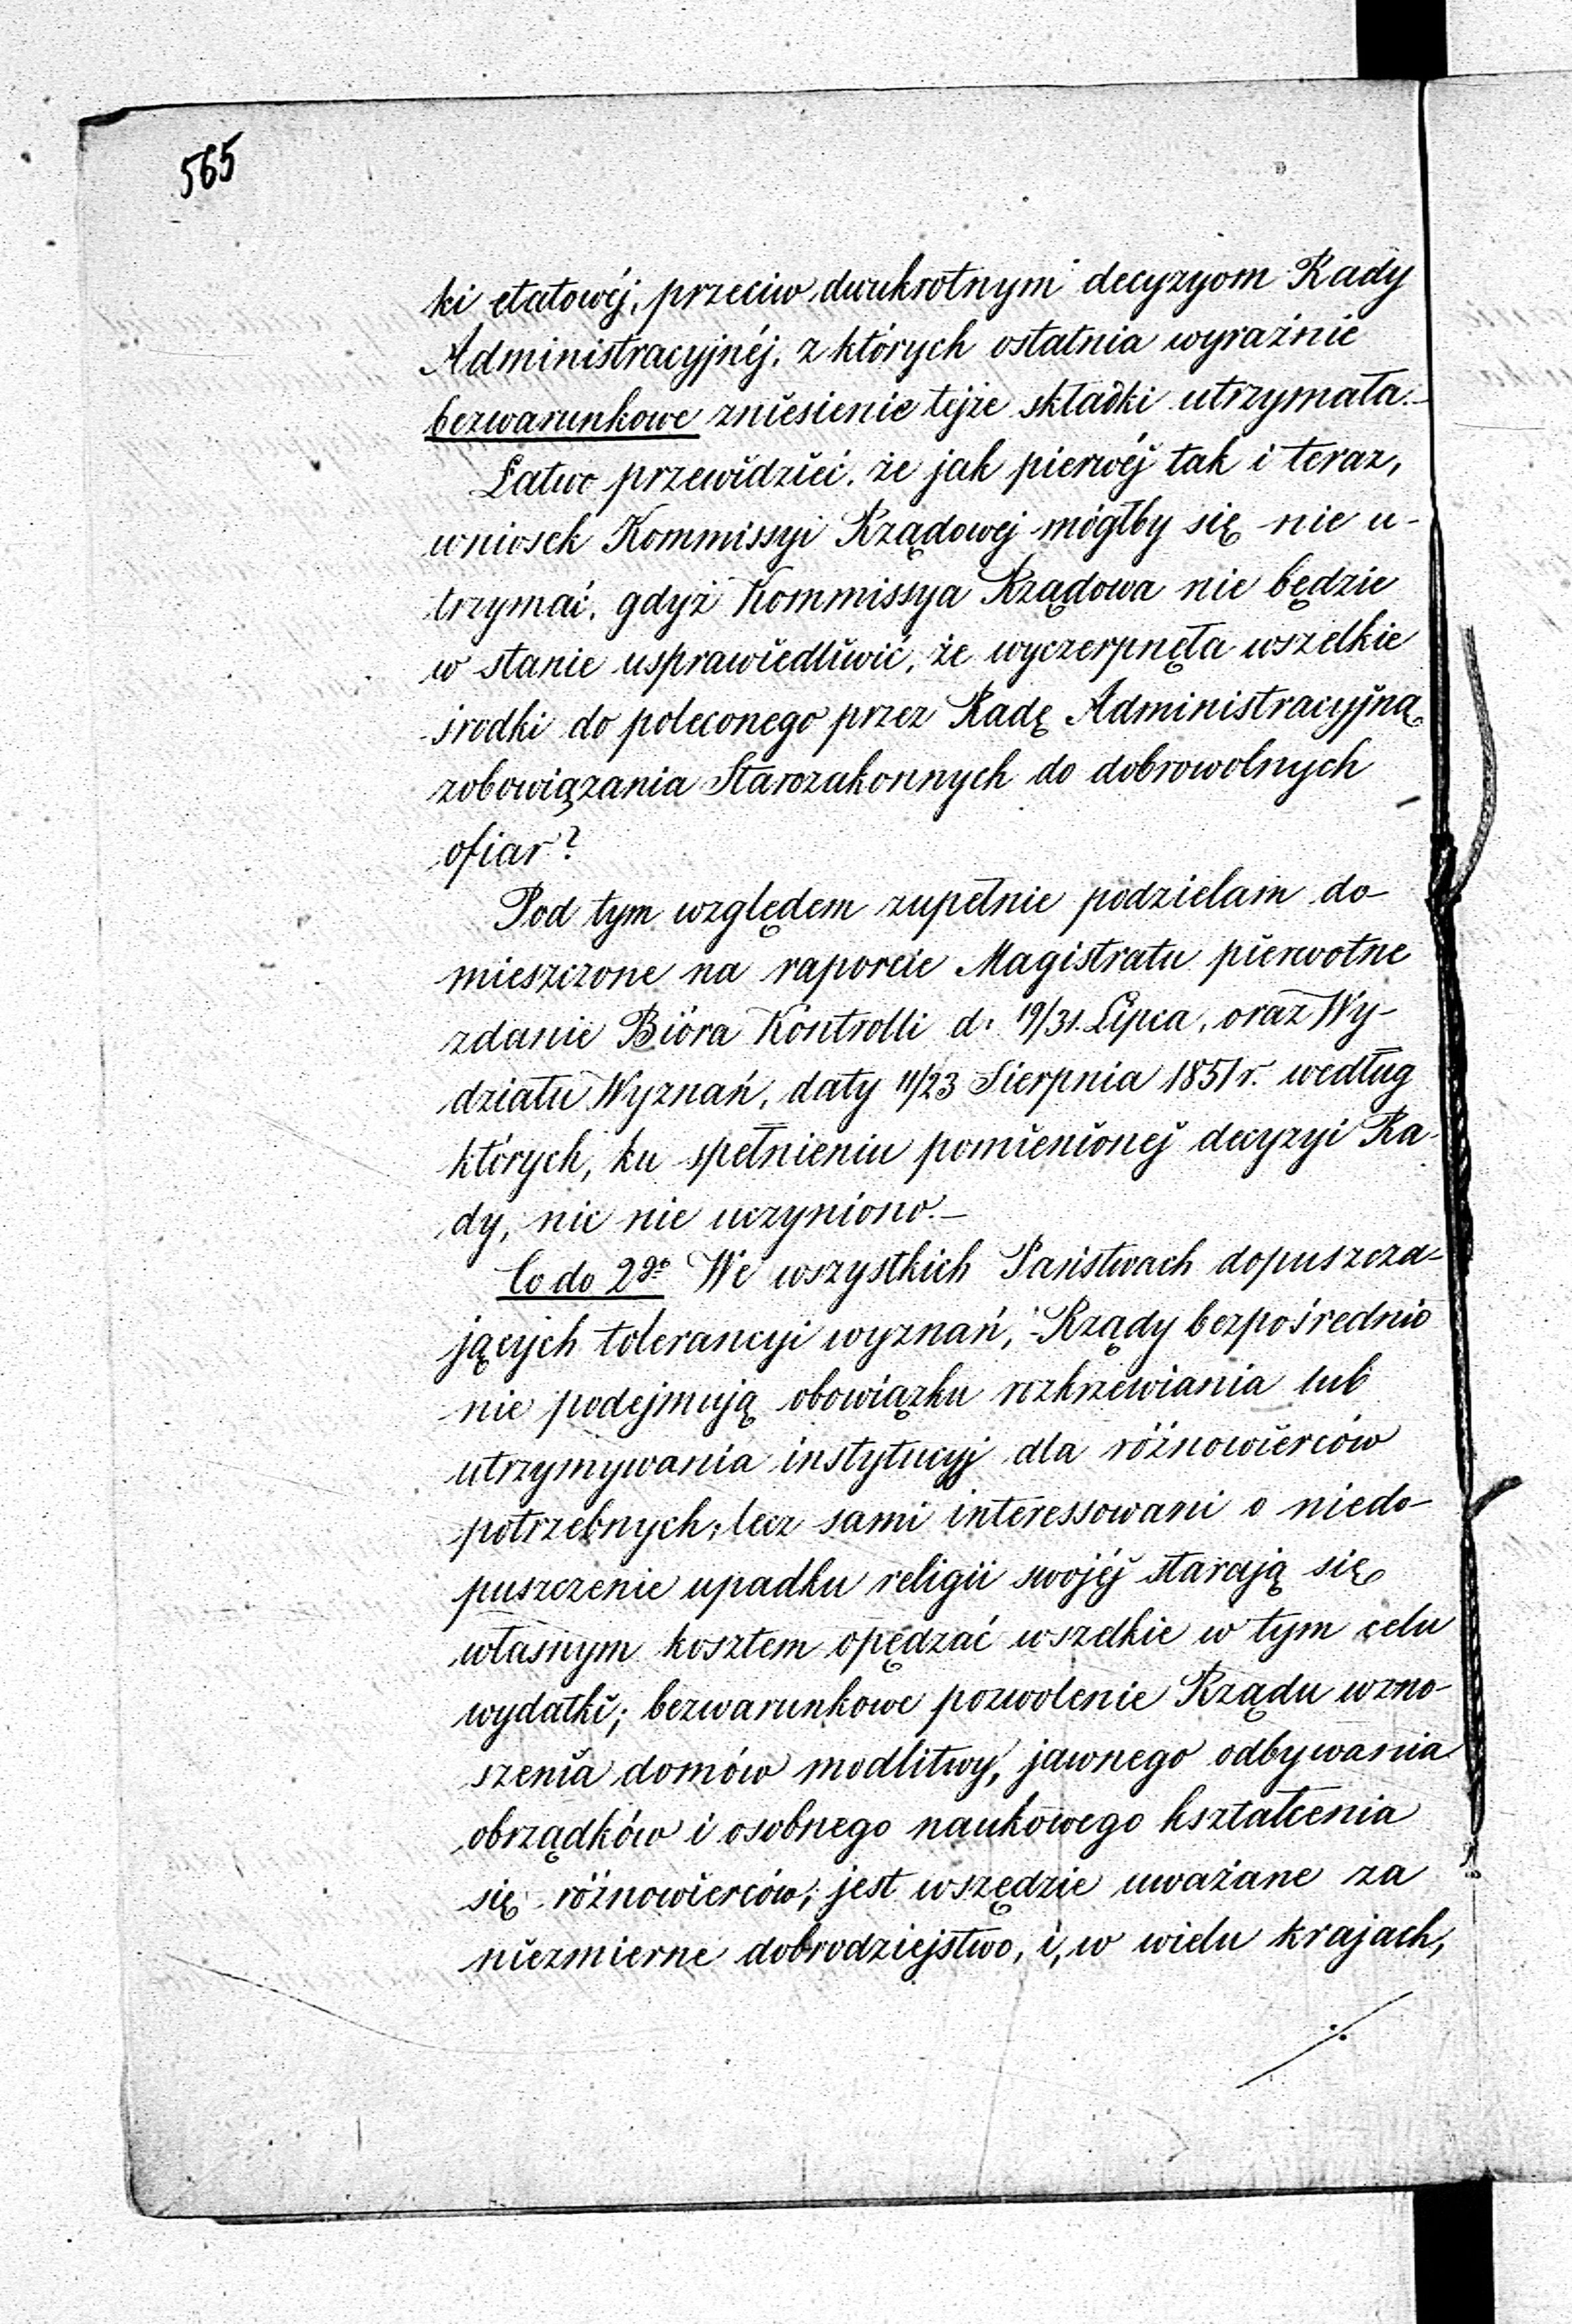 565
ki etatowéj, przeciw dwukrotnym decyzyom Rady
Administracyjnéj, z których ostatnia wyraźnie
bezwarunkowe zniesienie tejże składki utrzymała.–
Łatwo przewidzieć, że jak pierwéj tak i teraz,
wniosek Kommissyi Rządowej mógłby się nie u-
trzymać, gdyż Kommissya Rządowa nie będzie
w stanie usprawiedliwić, że wyczerpnęła wszelkie
środki do poleconego przez Radę Administracyjną
zobowiązania Starozakonnych do dobrowolnych
ofiar?
Pod tym względem zupełnie podzielam do-
mieszczone na raporcie Magistratu pierwotne
zdanie Bióra Kontrolli d: 19/31. Lipca, oraz Wy-
działu Wyznań, daty 11/23 Sierpnia 1851 r. według
których, ku spełnieniu pomienionej decyzyi Ra-
dy, nic nie uczyniono.–
Co do 2go We wszystkich Państwach dopuszcza-
jących tolerancyi wyznań, Rządy bezpośrednio
nie podejmują obowiązku rozkrzewiania lub
utrzymywania instytucyj dla różnowierców
potrzebnych; lecz sami interessowani o niedo-
puszczenie upadku religii swojéj starają się
własnym kosztem opędzać wszelkie w tym celu
wydatki; bezwarunkowe pozwolenie Rządu wzno-
szenia domów modlitwy, jawnego odbywania
obrządków i osobnego naukowego kształcenia
się różnowierców; jest wszędzie uważane za
niezmierne dobrodziejstwo, i, w wielu krajach,
./.